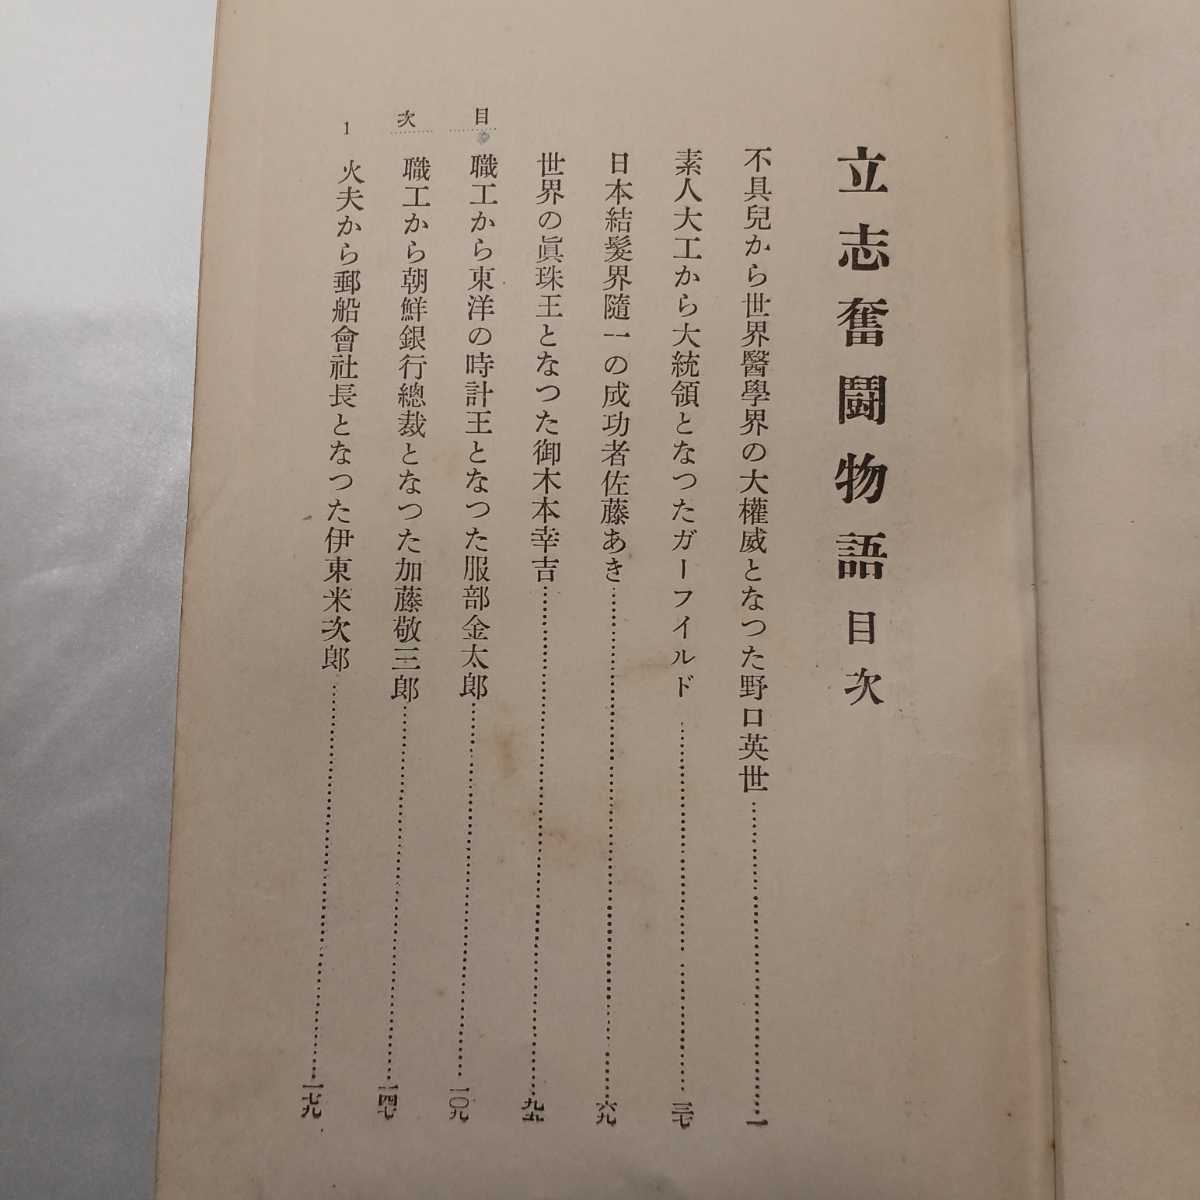 立志奮鬪物語 目次
不具兒から世界醫學界の大權威となつた野口英世……一
素人大工から大統領となつたガーフイルド……三七
日本結髮界隨一の成功者佐藤あき……六九
世界の眞珠王となつた御木本幸吉……九五
職工から東洋の時計王となつた服部金太郎……一〇九
職工から朝鮮銀行總裁となつた加藤敬三郎……一四七
火夫から郵船會社長となつた伊東米次郎……一七九
目次
1